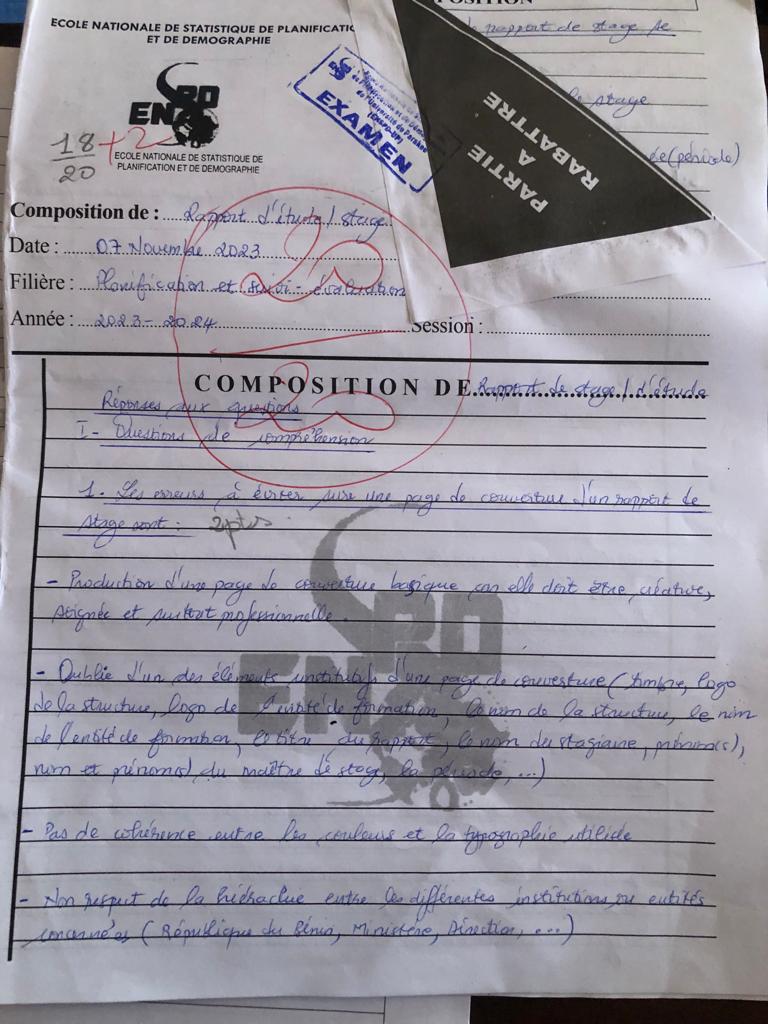 ECOLE NATIONALE DE STATISTIQUE DE PLANIFICATIO
ET DE DEMOGRAPHIE
ENSPD
ECOLE NATIONALE DE STATISTIQUE DE
PLANIFICATION ET DE DEMOGRAPHIE
18 +2
20
EXAMEN
PARTIE
A
RABATTRE
POSITION
rapport de stage se
le stage
ée (période)
Composition de : Rapport d'étude / stage
Date : 07 Novembre 2023
Filière : Planification et suivi-évaluation
Année : 2023-2024 Session :
20
20
COMPOSITION DE Rapport de stage / d'étude
Réponses aux questions
I- Questions de compréhension
1. Les erreurs à éviter sur une page de couverture d'un rapport de
stage sont : 2pts
- Production d'une page de couverture basique car elle doit être créative,
soignée et surtout professionnelle.
- Oublie d'un des éléments institutifs d'une page de couverture (timbre, logo
de la structure, logo de l'entité de formation, le nom de la structure, le nom
de l'entité de formation, le titre du rapport, le nom du stagiaire, prénom(s),
nom et prénom(s) du maître de stage, la période, ...)
- Pas de cohérence entre les couleurs et la typographie utilisée
- Non respect de la hiérachie entre les différentes institutions ou entités
concernées (République du Bénin, Ministère, Direction, ...)